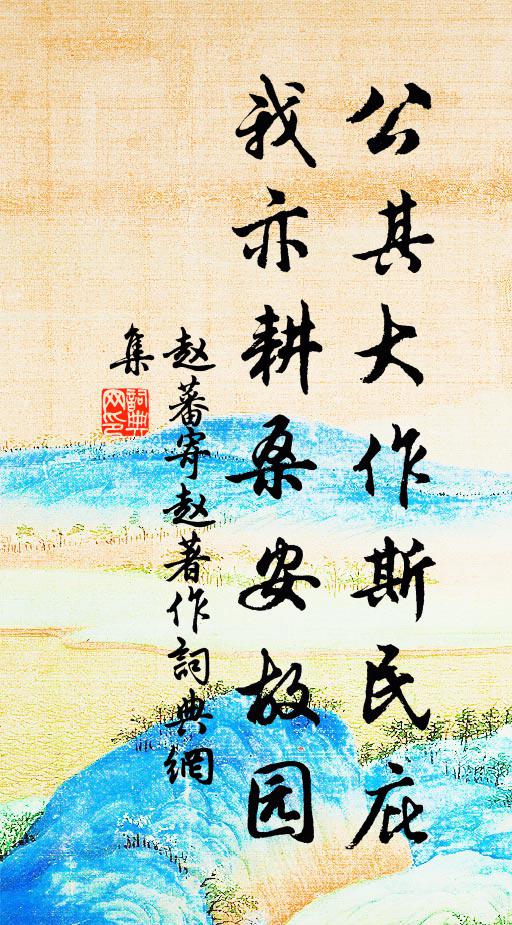 公其大作斯民庇
我亦耕桑安故园
赵蕃寄赵著作詞典網
集
詞典
网印